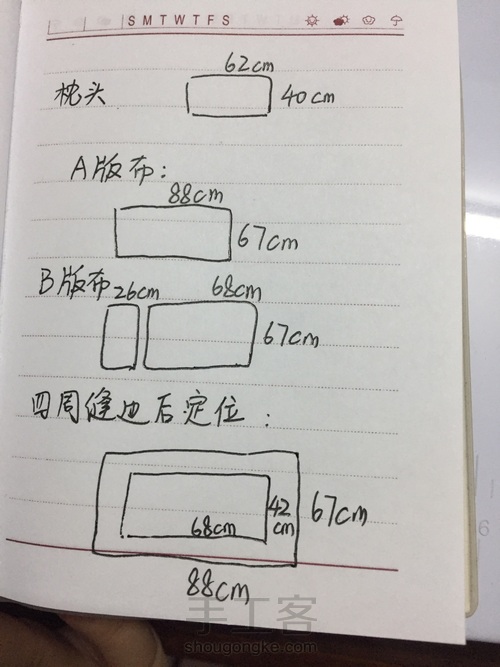 S M T W T F S
62cm
枕头
40cm
A版布:
88cm
67cm
B版布 26cm 68cm
67cm
四周缝边后定位:
42
cm
68cm
67cm
88cm
手工客
shougongke.com
6